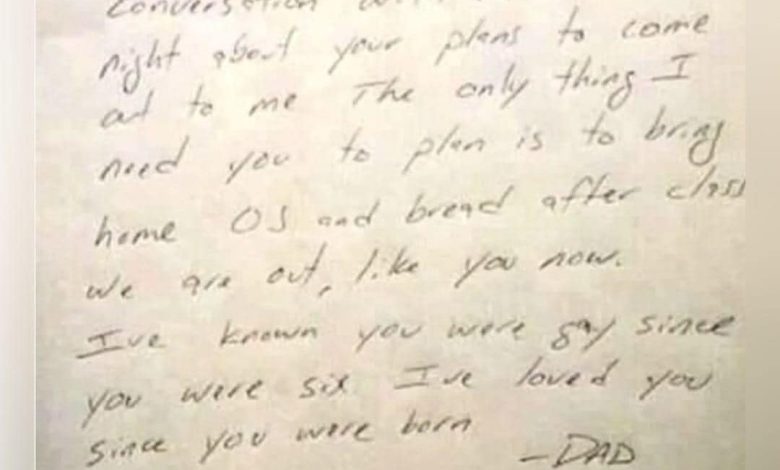 conversation
night about your plans to come
out to me The only thing I
need you to plan is to bring
home OJ and bread after class
we are out, like you now.
I've known you were gay since
you were six I've loved you
since you were born
-DAD